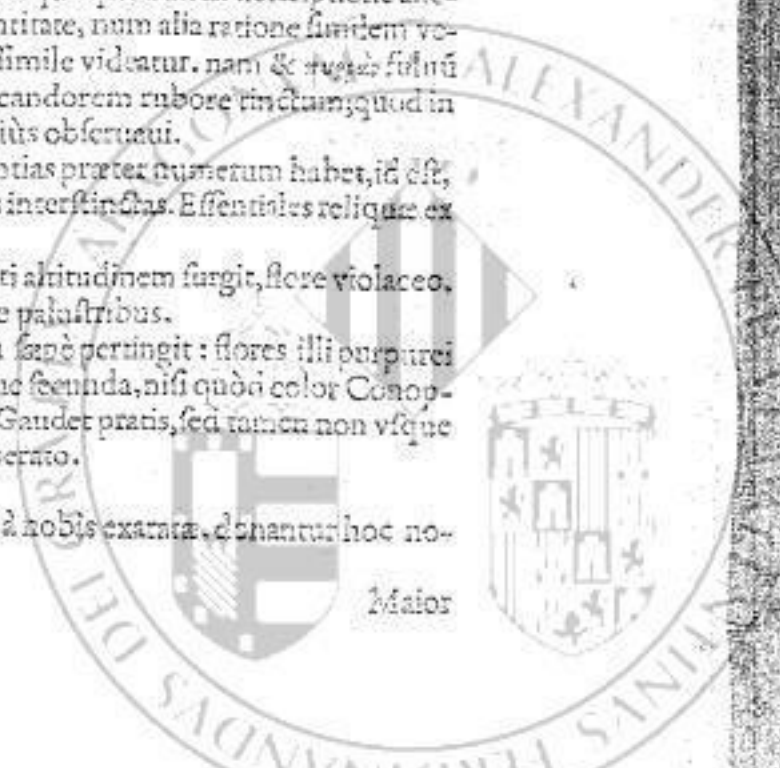 ntitate, num alia ratione ſimilem vo-
ſimile videatur. nam &
candorem rubore tinctum; quod in
iùs obſeruaui.
ntias præter numerum habet, id eſt,
interſtinctas. Eſſentiales reliquæ ex
ti altitudinem ſurgit, flore violaceo,
e paluſtribus.
ſæpè pertingit : flores illi purpurei
ſecunda, niſi quòd color Conop-
Gaudet pratis, ſed tamen non vſque
erato.
à nobis exaratæ, donantur hoc no-
Maior
ALEXANDER
DEI GRA